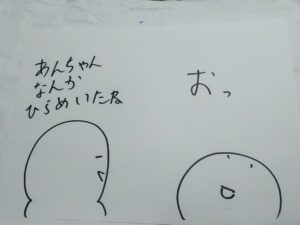 あんちゃん
なんか
ひらめいたね
おっ